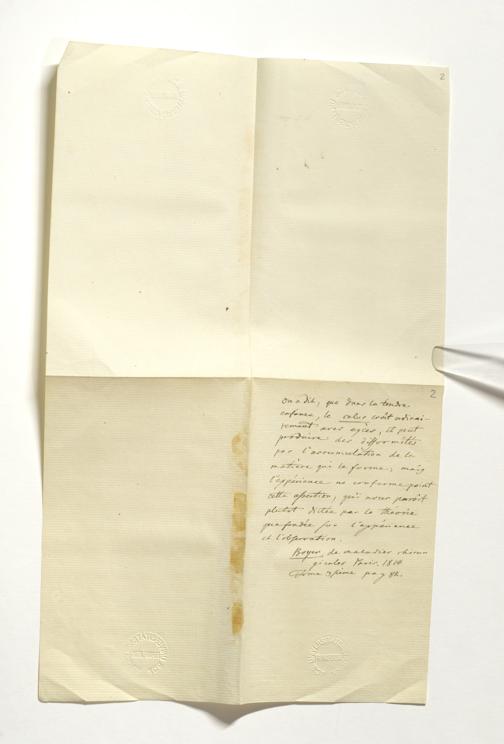 2
2
on a dit, que dans la tendre
enfance, le calus croît ordinai-
rement avec excès, il peut
produire des difformités
par l'accumulation de la
matière qui le forme; mais
l'expérience ne confirme point
cette assertion, qui nous paroît
plutot dictée par la théorie
que fondée sur l'expérience
et l'observation.
Boyer, de maladies chirur
gicales Paris. 1814
Tome 3ième pag 82.